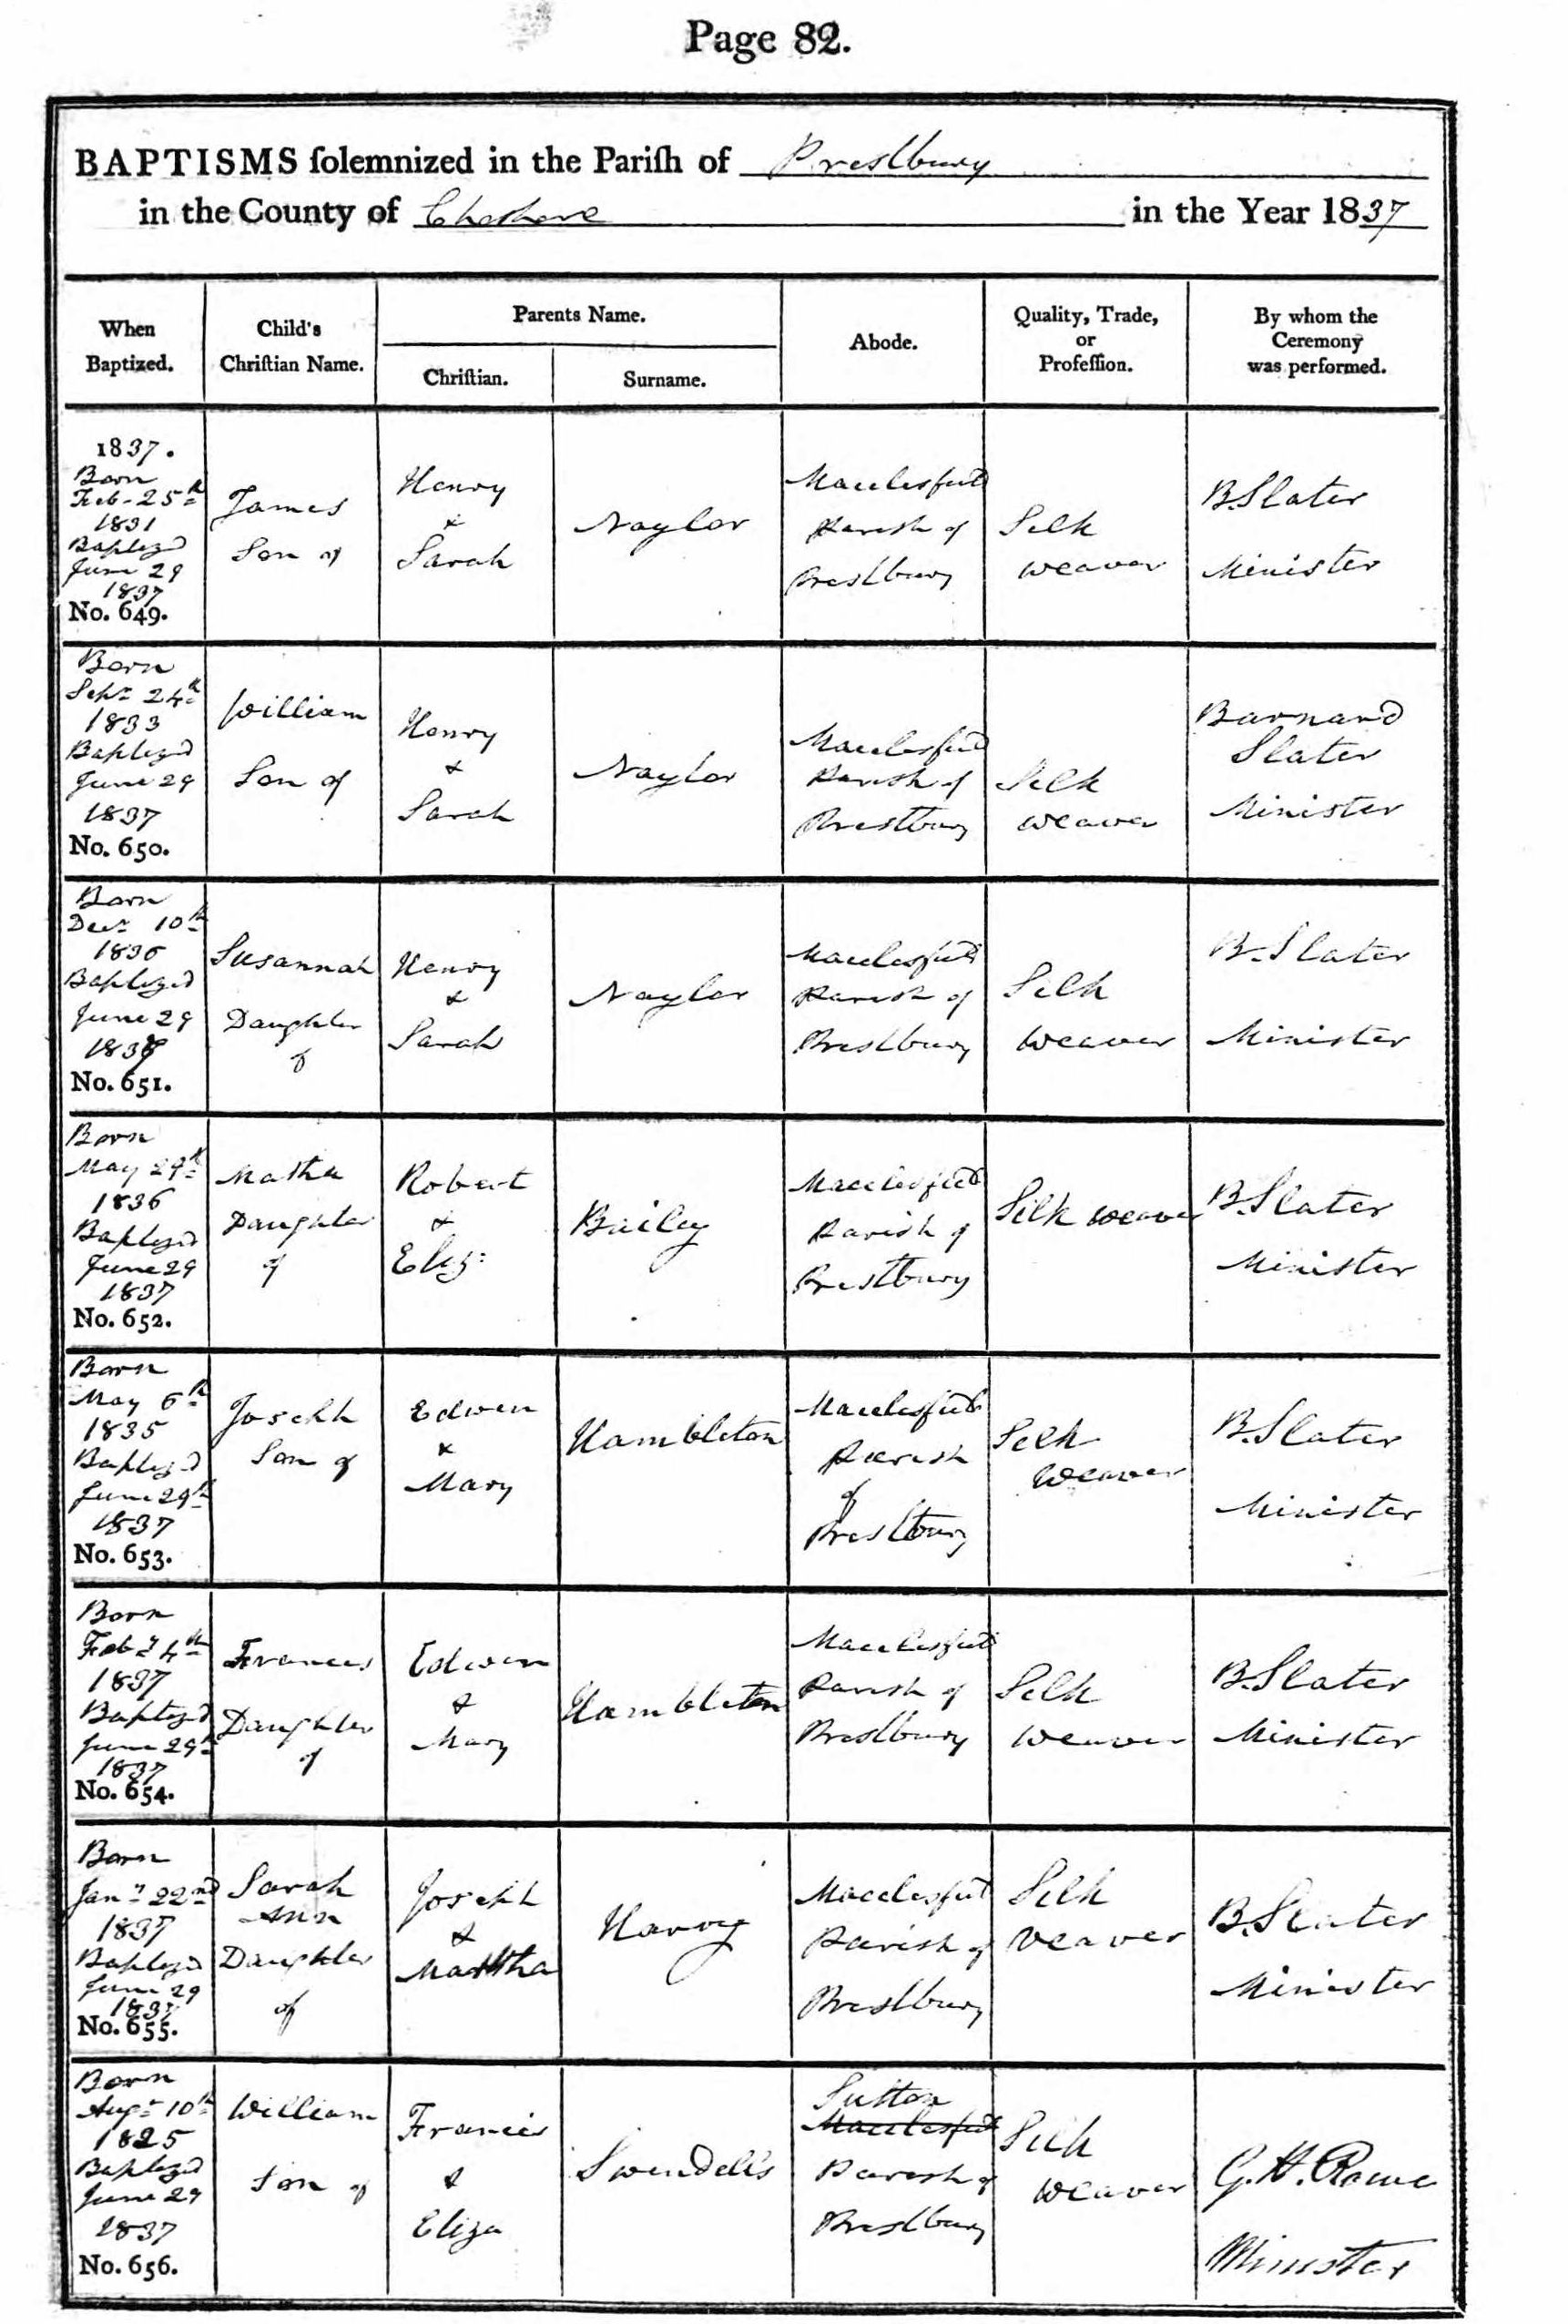 Page 82.
BAPTISMS ſolemnized in the Pariſh of Prestbury
in the County of Cheshire in the Year 1837
When
Baptized.
Child's
Chriſtian Name.
Parents Name.
Chriſtian.
Surname.
Abode.
Quality, Trade,
or
Profeſſion.
By whom the
Ceremony
was performed.
1837.
Born
Feb. 25th
1831
Baptized
June 29
1837
No. 649.
James
Son of
Henry
&
Sarah
Naylor
Macclesfield
Parish of
Prestbury
Silk
weaver
B. Slater
Minister
Born
Sepr 24th
1833
Baptized
June 29
1837
No. 650.
William
Son of
Henry
&
Sarah
Naylor
Macclesfield
Parish of
Prestbury
Silk
weaver
Barnard
Slater
Minister
Born
Decr 10th
1836
Baptized
June 29
1837
No. 651.
Susannah
Daughter
of
Henry
&
Sarah
Naylor
Macclesfield
Parish of
Prestbury
Silk
weaver
B. Slater
Minister
Born
May 29th
1836
Baptized
June 29
1837
No. 652.
Matha
Daughter
of
Robert
&
Eliz:
Bailey
Macclesfield
Parish of
Prestbury
Silk weaver
B. Slater
Minister
Born
May 6th
1835
Baptized
June 29th
1837
No. 653.
Joseph
Son of
Edwin
&
Mary
Hambleton
Macclesfield
Parish
of
Prestbury
Silk
weaver
B. Slater
Minister
Born
Feby 4th
1837
Baptized
June 29th
1837
No. 654.
Frances
Daughter
of
Edwin
&
Mary
Hambleton
Macclesfield
Parish of
Prestbury
Silk
weaver
B. Slater
Minister
Born
Jany 22nd
1837
Baptized
June 29
1837
No. 655.
Sarah
Ann
Daughter
of
Joseph
&
Martha
Harry
Macclesfield
Parish of
Prestbury
Silk
weaver
B. Slater
Minister
Born
Augt 10th
1825
Baptized
June 29
1837
No. 656.
William
Son of
Francis
&
Eliza
Swindells
Sutton
Macclesfield
Parish of
Prestbury
Silk
weaver
G. H. Rowe
Minister